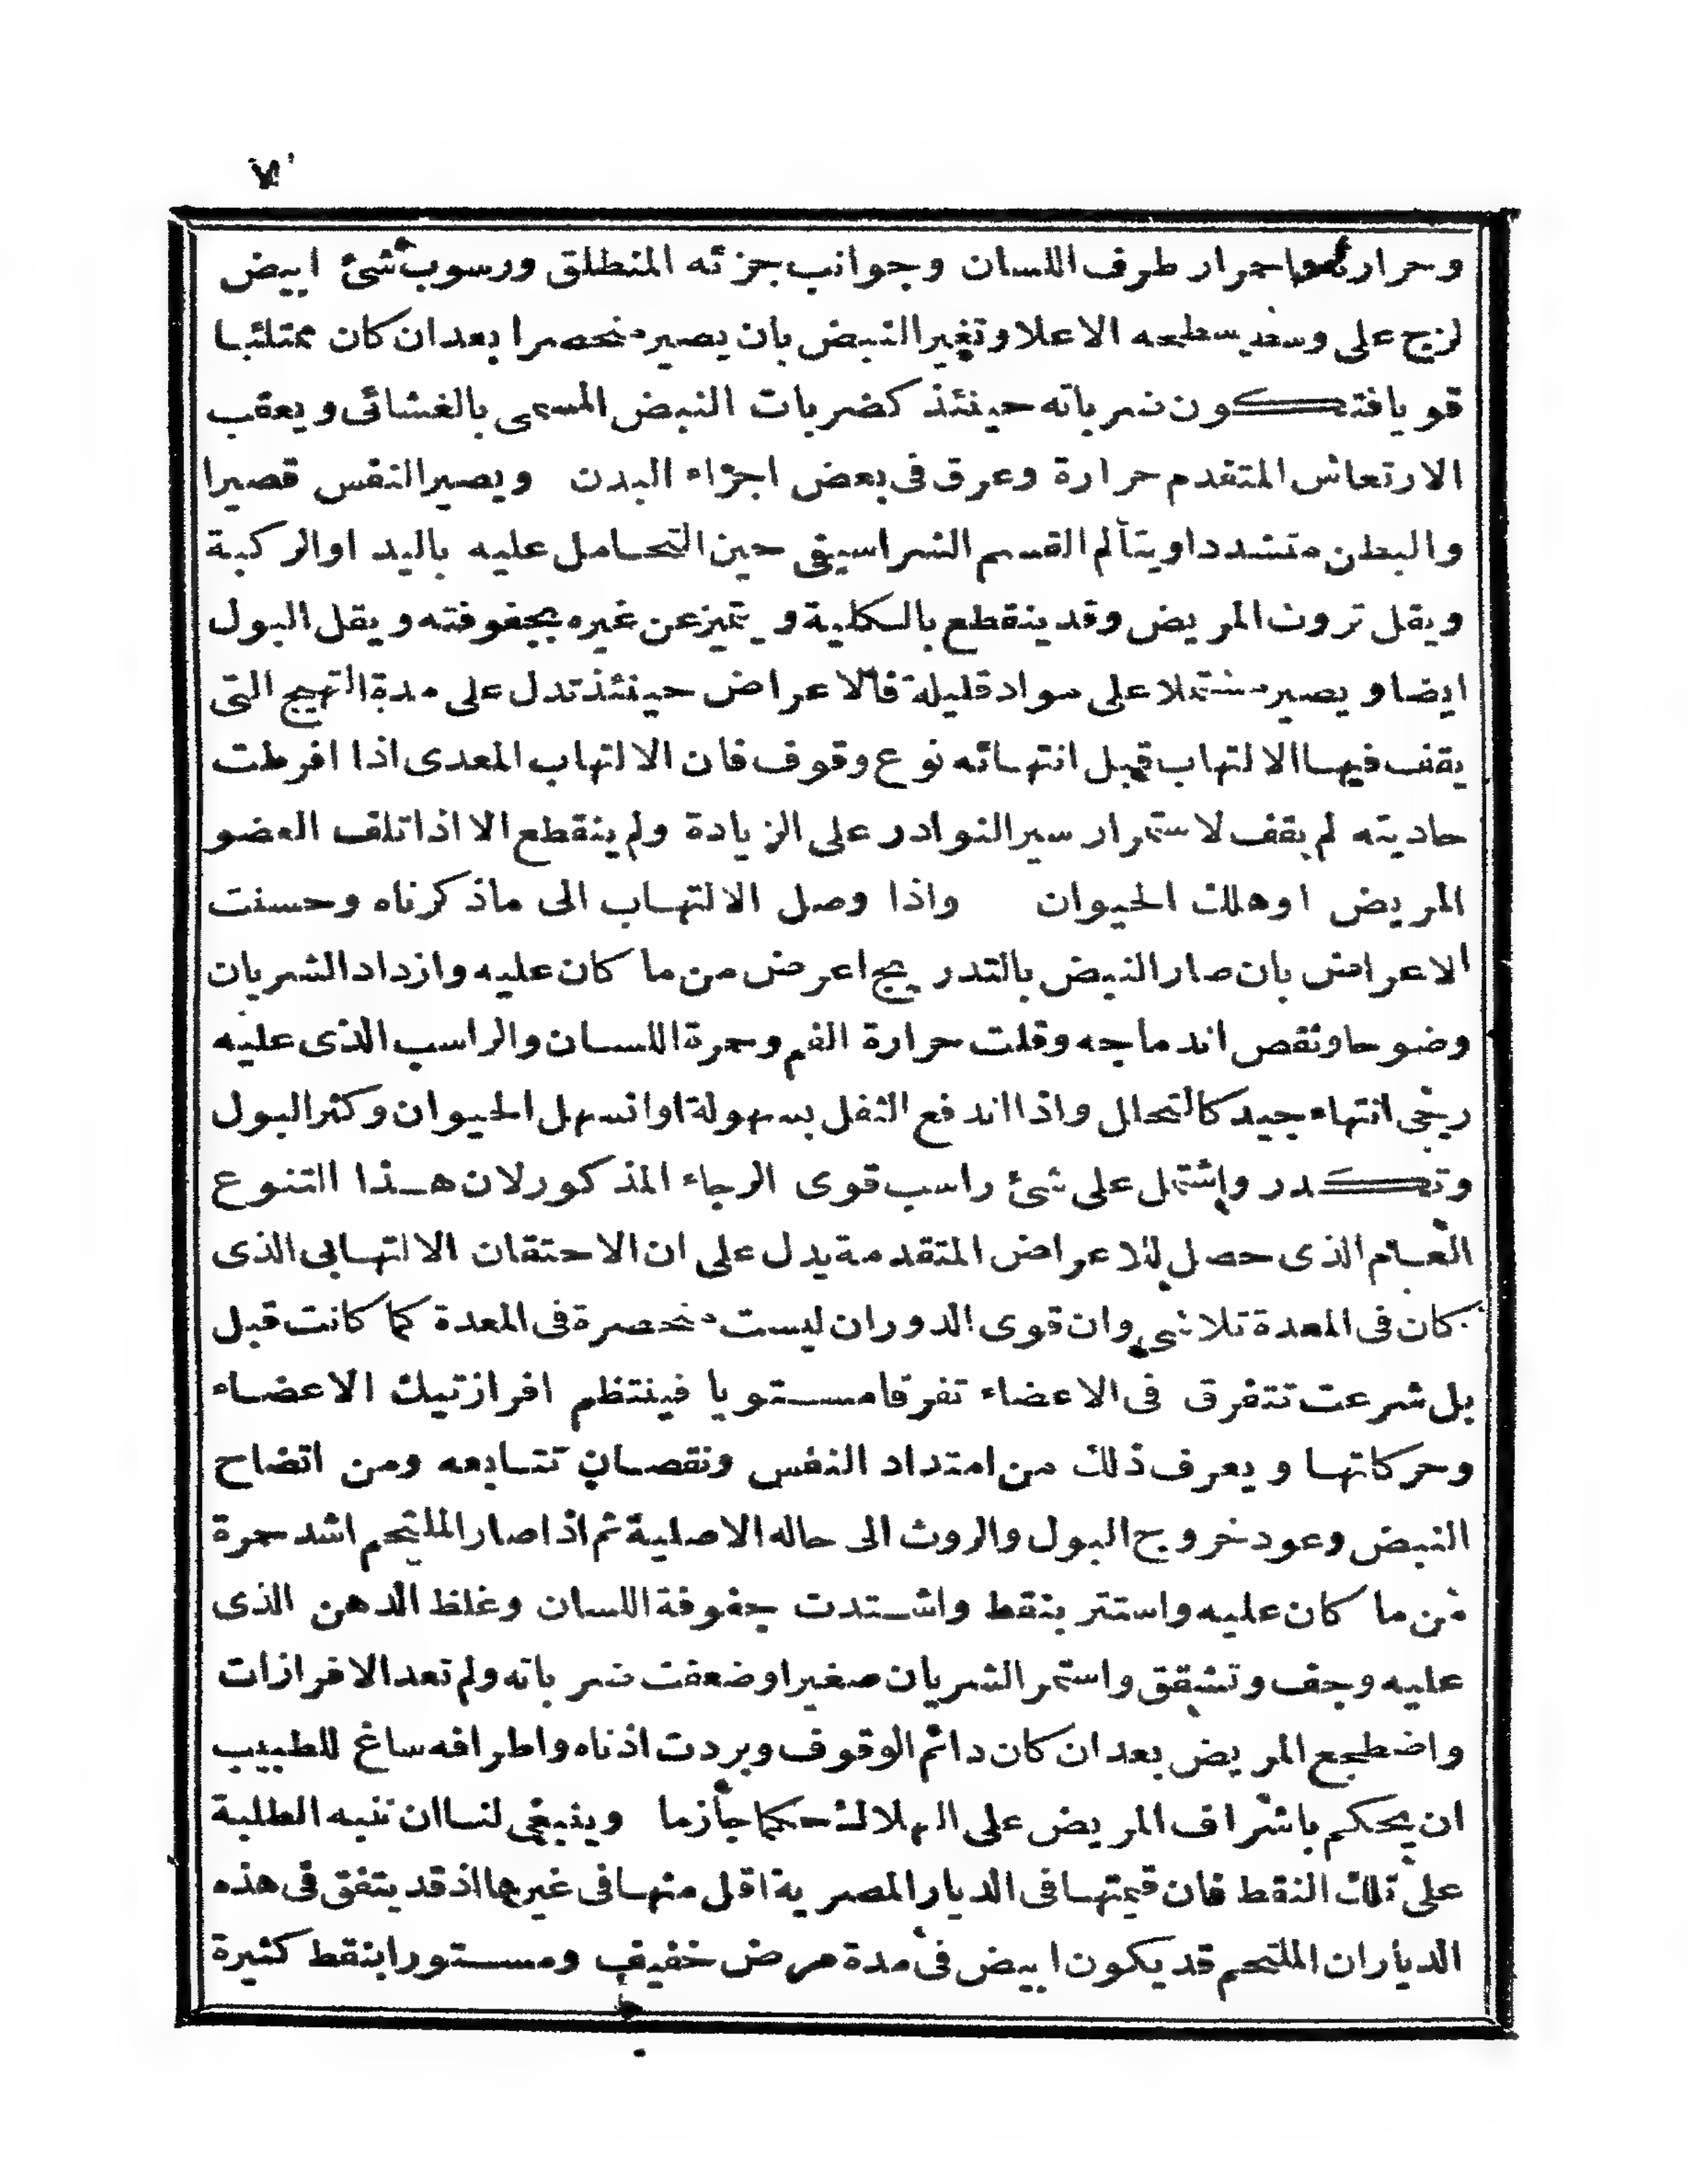 وحرارته واحمرار طرف اللسان وجوانب جزئه المنطلق ورسوب شئ ابيض
لزج على وسط سطحه الاعلا وتغير النبض بان يصير منحصرا بعد ان كان ممتلئبا
قويا فتكون ضرباته حينئذ كضربات النبض المسمى بالغشائى ويعقب
الارتعاش المتقدم حرارة وعرق فى بعض اجزاء البدن ويصير النفس قصيرا
والبطن متشددا ويتألم القسم الشراسيفى حين التحامل عليه باليد او الركبة
ويقل تروث المريض وقد ينقطع بالكلية ويتميز عن غيره بجفوفته ويقل البول
ايضا ويصير مشتملا على مواد قليلة فالاعراض حينئذ تدل على مدة التهيج التى
يقف فيها الالتهاب قبل انتهائه نوع وقوف فان الالتهاب المعدى اذا افرطت
حاديته لم يقف لاستمرار سير النوادر على الزيادة ولم ينقطع الا اذا تلف العضو
المريض او هلك الحيوان واذا وصل الالتهاب الى ما ذكرناه وحسنت
الاعراض بان صار النبض بالتدريج اعرض من ما كان عليه وازداد الشريان
وضوحا ونقص اندماجه وقلت حرارة الفم وحمرة اللسان والراسب الذى عليه
رجى انتهاء جيد كالتحلل واذا اندفع الثفل بسهولة او انسهل الحيوان وكثر البول
وتكدر واشتمل على شئ راسب قوى الرجاء المذكور لان هذا التنوع
العام الذى حصل للاعراض المتقدمة يدل على ان الاحتقان الالتهابى الذى
كان فى المعدة تلاشى وان قوى الدوران ليست منحصرة فى المعدة كما كانت قبل
بل شرعت تتفرق فى الاعضاء تفرقا مستويا فينتظم افراز تيك الاعضاء
وحركاتها ويعرف ذلك من امتداد النفس ونقصان تتابعه ومن اتضاح
النبض وعود خروج البول والروث الى حاله الاصلية ثم اذا صار الملتحم اشد حمرة
من ما كان عليه واستتر بنقط واشتدت جفوفة اللسان وغلظ الدهن الذى
عليه وجف وتشقق واستمر الشريان صغيرا وضعفت ضرباته ولم تعد الافرازات
واضطجع المريض بعد ان كان دائم الوقوف وبردت اذناه واطرافه ساغ للطبيب
ان يحكم باشراف المريض على الهلاك حكما جازما وينبغى لنا ان ننبه الطلبة
على تلك النقط فان قيمتها فى الديار المصرية اقل منها فى غيرها اذ قد يتفق فى هذه
الديار ان الملتحم قد يكون ابيض فى مدة مرض خفيف ومستورا بنقط كثيرة